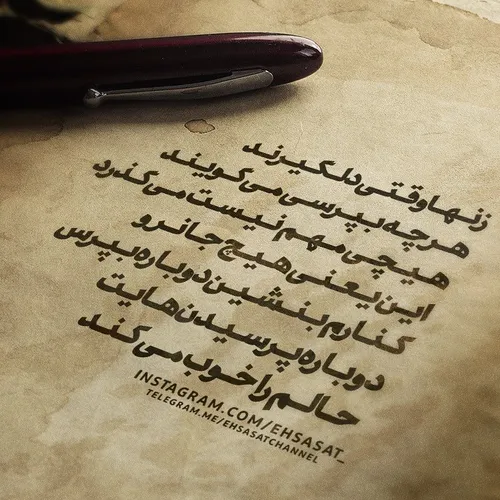 زنها وقتی دلگیرند
هرچه بپرسی می‌گویند
هیچی مهم نیست می‌گذرد
این یعنی هیچ جا نرو
کنارم بنشین دوباره بپرس
دوباره پرسیدن‌هایت
حالم را خوب می‌کند
INSTAGRAM.COM/EHSASAT_
TELEGRAM.ME/EHSASATCHANNEL